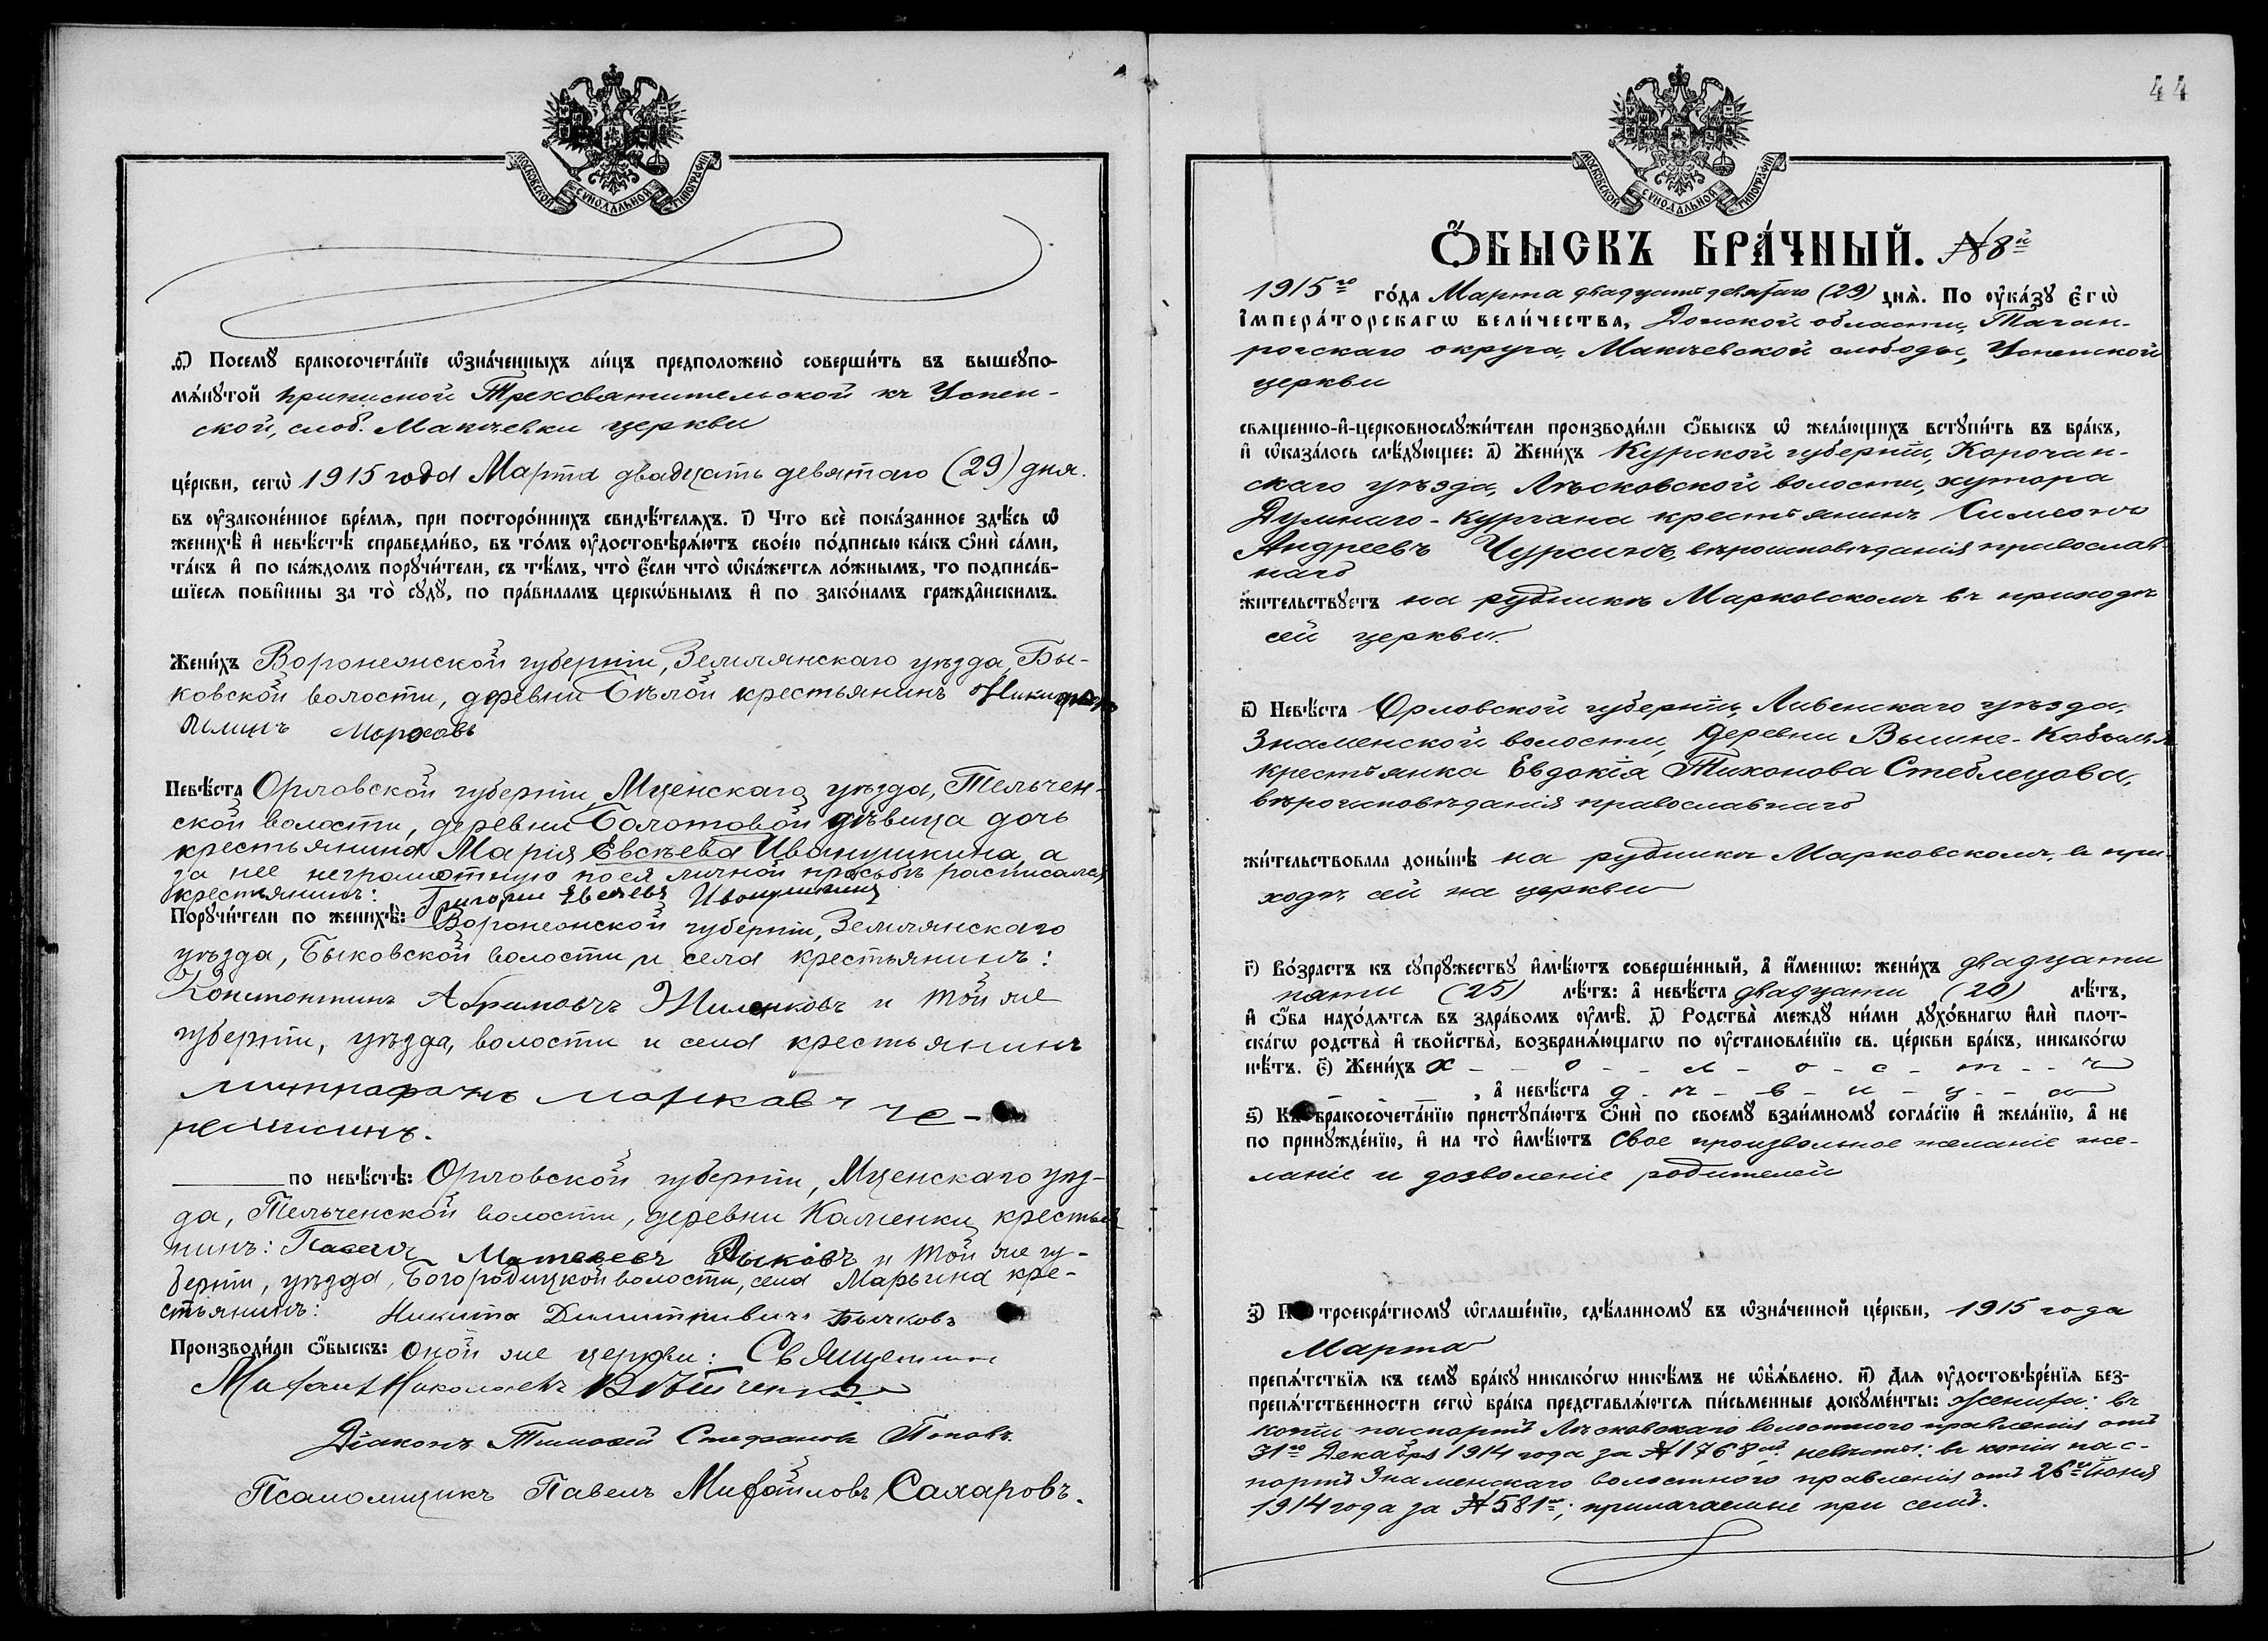 МОСКОВСКОЙ СѴНОДАЛЬНОЙ ТИПОГРАФІИ
Ѳ҃) Посемꙋ бракосочета́нїе ѡ҆зна́ченныхъ ли́цъ предположено̀ соверши́ть въ вышеꙋпо-
мѧ́нꙋтой приписной Трехсвятительской къ Успен-
ской, слоб. Макѣевки церкви
це́ркви, сегѡ̀ 1915 года Марта двадцать девятаго (29) дня.
въ ᲂу҆законе́нное вре́мѧ, при посторо́ннихъ свидѣ́телѧхъ. І҃) Что всѐ пока́занное здѣ́сь ѡ҆
женихѣ̀ и҆ невѣ́стѣ справедли́во, въ то́мъ ᲂу҆достовѣрѧ́ютъ свое́ю по́дписью ка́къ ѻ҆нѝ са́ми,
та́къ и҆ по ка́ждомъ порꙋчи́тели, съ тѣ́мъ, что̀ є҆́сли что̀ ѡ҆ка́жетсѧ ло́жнымъ, то подписа́в-
шїесѧ пови́нны за то̀ сꙋдꙋ̀, по пра́виламъ церкѡ́внымъ и҆ по зако́намъ гражда̂нскимъ.
Жени́хъ Воронежской губерніи, Землянскаго уѣзда, Бы-
ковской волости, деревни Бѣлой крестьянинъ
Невѣ́ста Орловской губерніи, Мценскаго уѣзда, Тельчен-
ской волости, деревни Болотовой дѣвица дочь
крестьянина Марія Евсѣева Иванушкина, а
за нее неграмотную по ея личной просьбѣ расписался
крестьянинъ: Григории Евсеевъ Иванушкинъ
Порꙋчи́тели по женихѣ̀: Воронежской губерніи, Землянскаго
уѣзда, Быковской волости и села крестьянинъ:
Константинъ Абрамовъ и той же
губерніи, уѣзда, волости и села крестьянинъ
митрафанъ марковъ че-
ремисинъ.
по невѣ́стѣ: Орловской губерніи, Мценскаго уѣз-
да, Тельченской волости, деревни Каменки крестья-
нинъ: Павелъ Матвеевъ и той же гу-
берніи, уѣзда, Богородицкой волости, села Марьина кре-
стьянинъ: Никита Димитриевичъ Бычковъ
Производи́ли ѻ҆́быскъ: оной же церкви: Священникъ
Михаилъ Николаевъ
Діаконъ Тимофей Стефановъ Поповъ.
Псаломщикъ Павелъ Михайловъ Сахаровъ.
44
МОСКОВСКОЙ СѴНОДАЛЬНОЙ ТИПОГРАФІИ
Ѻ҆́БЫСКЪ БРА́ЧНЫЙ. № 8й
1915го го́да Марта двадцать девятаго (29) днѧ̀. По ᲂу҆ка́зꙋ Є҆гѡ̀
І҆мпера́торскагѡ вели́чества, Донской области, Таган-
рогскаго округа, Макѣевской слободы, Успенской
церкви
свѧщенно-и҆-церковнослꙋжи́тели производи́ли ѻ҆́быскъ ѡ҆ жела́ющихъ встꙋпи́ть въ бра́къ,
и҆ ѡ҆каза́лось слѣ́дꙋющее: А҃) Жени́хъ Курской губерніи, Корочан-
скаго уѣзда, Лѣсковской волости, хутора
Думнаго-Кургана крестьянинъ Симеонъ
Андреевъ Чурсинъ, вѣроисповѣданія православ-
наго
жи́тельствꙋетъ на рудникѣ Марковскомъ въ приходѣ
сей церкви.
В҃) Невѣ́ста Орловской губерніи, Ливенскаго уѣзда,
Знаменской волости, деревни Вышне-
крестьянка Евдокія Тихонова Стеблецова,
вѣроисповѣданія православнаго
жи́тельствовала доны́нѣ на рудникѣ Марковскомъ, въ при-
ходѣ сей на церкви
Г҃) Во́зрастъ къ сꙋпрꙋжествꙋ и҆мѣ́ютъ соверше́нный, а҆ и҆́меннѡ: жени́хъ двадцати
пяти (25) лѣ́тъ: а҆ невѣ́ста двадцати (20) лѣ́тъ,
и҆ ѻ҆́ба нахо́дѧтсѧ въ здра́вомъ ᲂу҆мѣ̀. Д҃) Родства̀ междꙋ̀ ни́ми дꙋхо́внагѡ и҆лѝ плот-
ска́гѡ родства̀ и҆ сво́йства̀, возбранѧ́ющагѡ по ᲂу҆становле́нїю св. це́ркви бра́къ, никако́гѡ
нѣ́тъ. Є҃) Жени́хъ х - о - л - о - с - т - ъ
, а҆ невѣ́ста д - ѣ - в - и - ц - а
Ѕ҃) Къ бракосочета́нїю пристꙋпа́ютъ ѻ҆нѝ по своемꙋ̀ взаи́мномꙋ согла́сїю и҆ жела́нїю, а҆ не
по принꙋжде́нїю, и҆ на то̀ и҆мѣ́ютъ свое произвольное желаніе же-
ланіе и дозволеніе родителей
З҃) По троекра́тномꙋ ѡ҆глаше́нїю, сдѣ́ланномꙋ въ ѡ҆зна́ченной це́ркви, 1915 года
Марта
препѧ́тствїѧ къ семꙋ̀ бра́кꙋ никако́гѡ никѣ́мъ не ѡ҆б̾ѧ́влено. И҃) Длѧ ᲂу҆достовѣре́нїѧ без-
препѧ́тственности сегѡ̀ бра́ка представлѧ́ютсѧ пи́сьменные докꙋме́нты: жениха: въ
копіи паспортъ Лѣсковскаго волостного правленія отъ
31го Декабря 1914 года за № 1768мъ, невѣсты: въ копіи пас-
портъ Знаменскаго волостного правленія отъ 26го Іюня
1914 года за № 581мъ; прилагаемые при семъ.